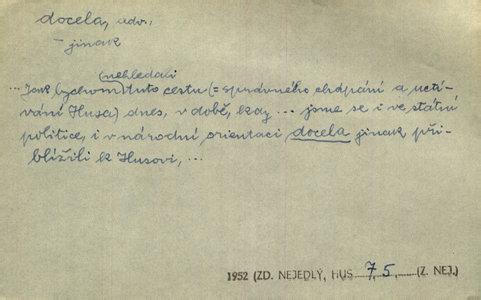 docela, adv.
– jinak
(nehledali
... Jak bychom) tuto cestu (= správného chápání a uctí-
vání Husa) dnes, v době, kdy ... jsme se i ve státní
politice, i v národní orientaci docela jinak při-
blížili k Husovi, ...
1952 (ZD. NEJEDLÝ, HUS 7, 5, (Z. NEJ.)